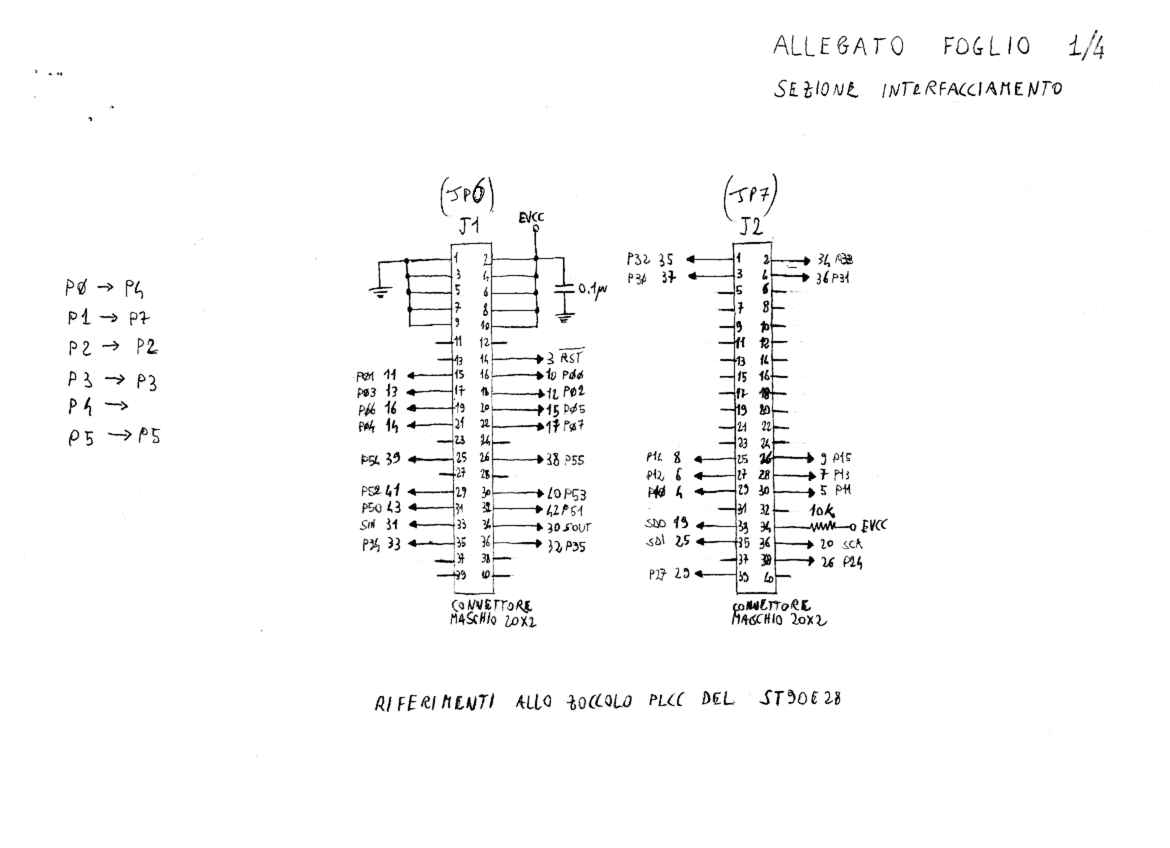 ALLEGATO FOGLIO 1/4
SEZIONE INTERFACCIAMENTO
PØ → P4
P1 → P7
P2 → P2
P3 → P3
P4 →
P5 → P5
(JP6)
J1
EVCC
1 2
3 4
5 6
0,1μ
7 8
9 10
11 12
13 14 3 RST
PØ1 11 15 16 10 PØØ
PØ3 13 17 18 12 PØ2
PØ6 16 19 20 15 PØ5
PØ4 14 21 22 17 PØ7
23 24
P54 39 25 26 38 P55
27 28
P52 41 29 30 40 P53
P50 43 31 32 42 P51
SIN 31 33 34 30 SOUT
P34 33 35 36 32 P35
37 38
39 40
CONNETTORE
MASCHIO 20X2
(JP7)
J2
P32 35 1 2 34 P33
P30 37 3 4 36 P31
5 6
7 8
9 10
11 12
13 14
15 16
17 18
19 20
21 22
23 24
P14 8 25 26 9 P15
P12 6 27 28 7 P13
P1Ø 4 29 30 5 P11
31 32 10K
SDO 19 33 34 EVCC
SDI 25 35 36 20 SCK
37 38 26 P24
P27 29 39 40
CONNETTORE
MASCHIO 20X2
RIFERIMENTI ALLO ZOCCOLO PLCC DEL ST90E28